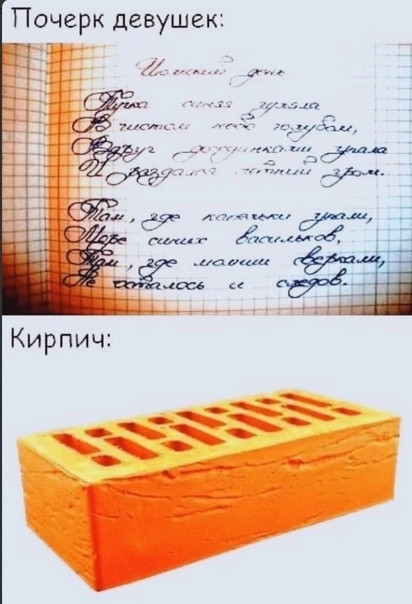 Почерк девушек:
Июньский день
Тучка синяя гуляла
В чистом небе голубом,
Вдруг дождинками упала
И раздался летний гром.
Там, где капельки упали,
Море синих васильков,
Там, где молнии сверкали,
Не осталось и следов.
Кирпич: